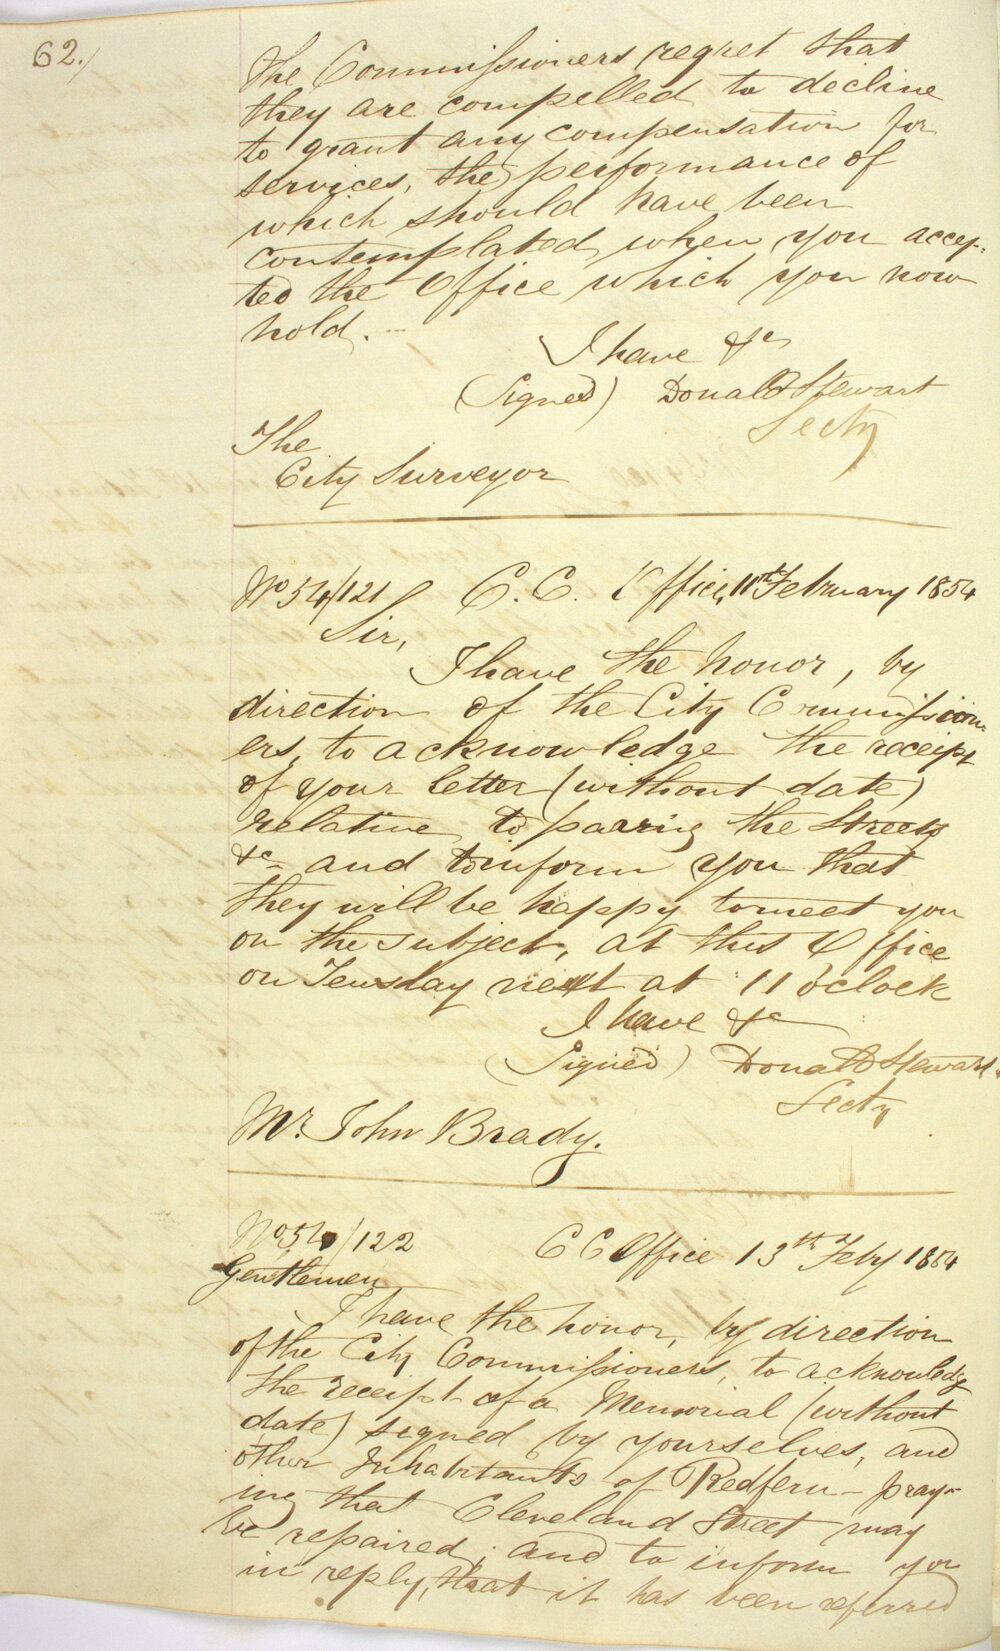 62.
The Commissioners regret that
they are compelled to decline
to grant any compensation for
services, the performance of
which should have been
contemplated when you accep-
ted the Office which you now
hold.
I have &c
(Signed) Donald Stewart
Secty
The
City Surveyor
No 54/121 C.C. Office, 11th February 1854
Sir,
I have the honor, by
direction of the City Commission-
ers, to acknowledge the receipt
of your letter (without date)
relative to paving the Streets
&c and to inform you that
they will be happy to meet you
on the subject, at this Office
on Teusday next at 11 o'clock
I have &c
(Signed) Donald Stewart
Secty
Mr. John Brady.
No 54/122 C C Office 13th Feby 1854
Gentlemen
I have the honor, by direction
of the City Commissioners, to acknowledge
the receipt of a Memorial (without
date) signed by yourselves, and
other Inhabitants of Redfern - pray-
ing that Cleveland Street may
be repaired; and to inform you
in reply, that it has been referred